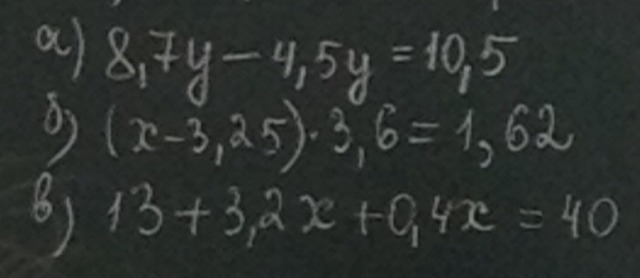 а) 8,7y - 4,5y = 10,5
б) (x - 3,25) · 3,6 = 1,62
в) 13 + 3,2x + 0,4x = 40